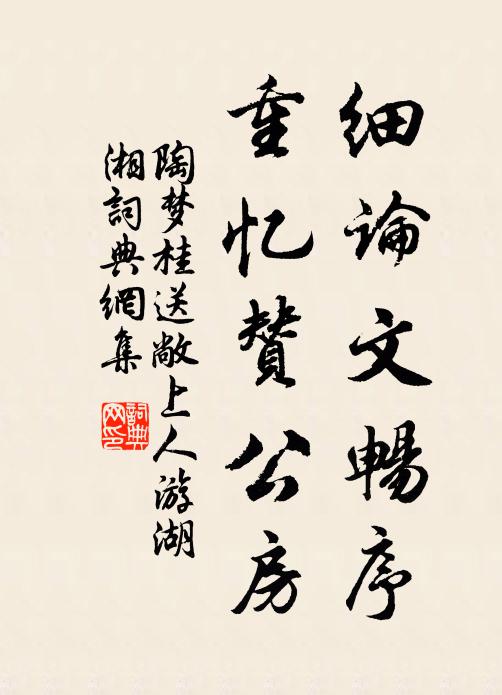 细论文畅序
重忆赞公房
陶梦桂送敞上人游湖
湘詞典網集
詞典网印